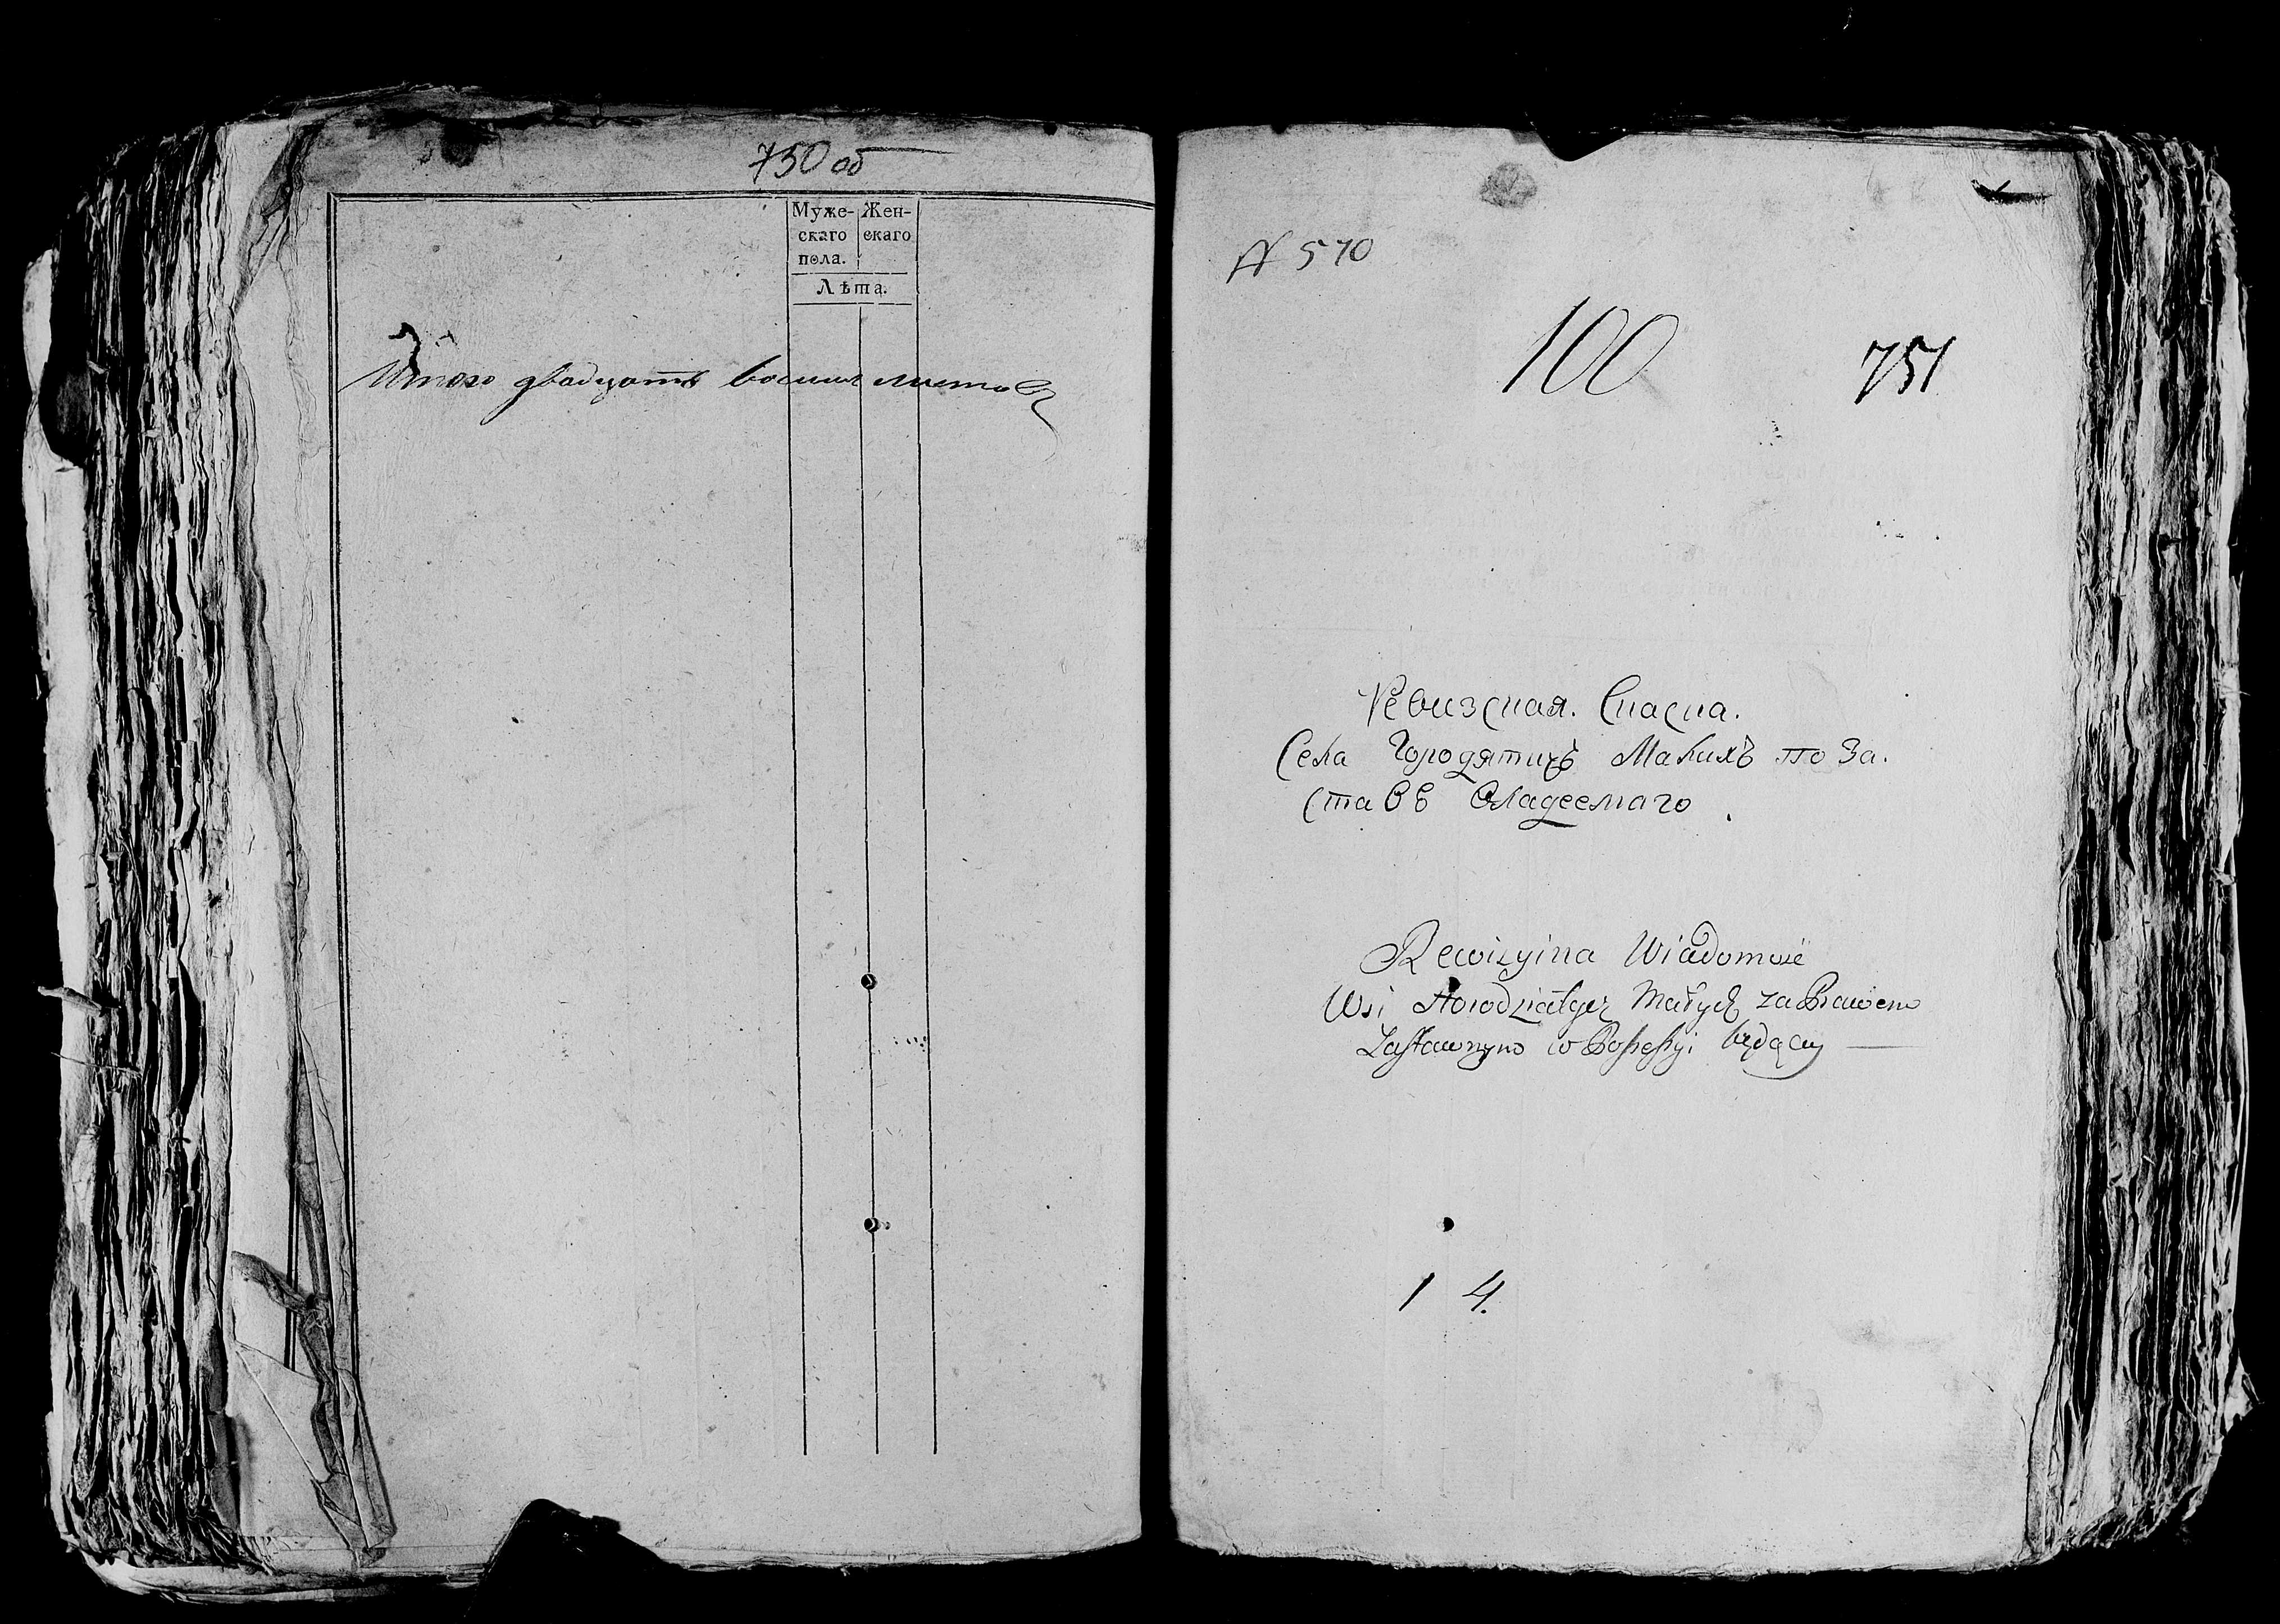 750 об
Муже- Жен-
скаго скаго
пола.
Лѣта.
Итого двадцать восмь листов
N 570
100 751
Ревизская. Сказка.
Села Городятичь Малихъ по За.
ставѣ Владеемаго.
Rewizyina Wiadomość
Wsi Horodziatycz Małych za Prawem
Zastawnym w Possessyi będący
1 4.